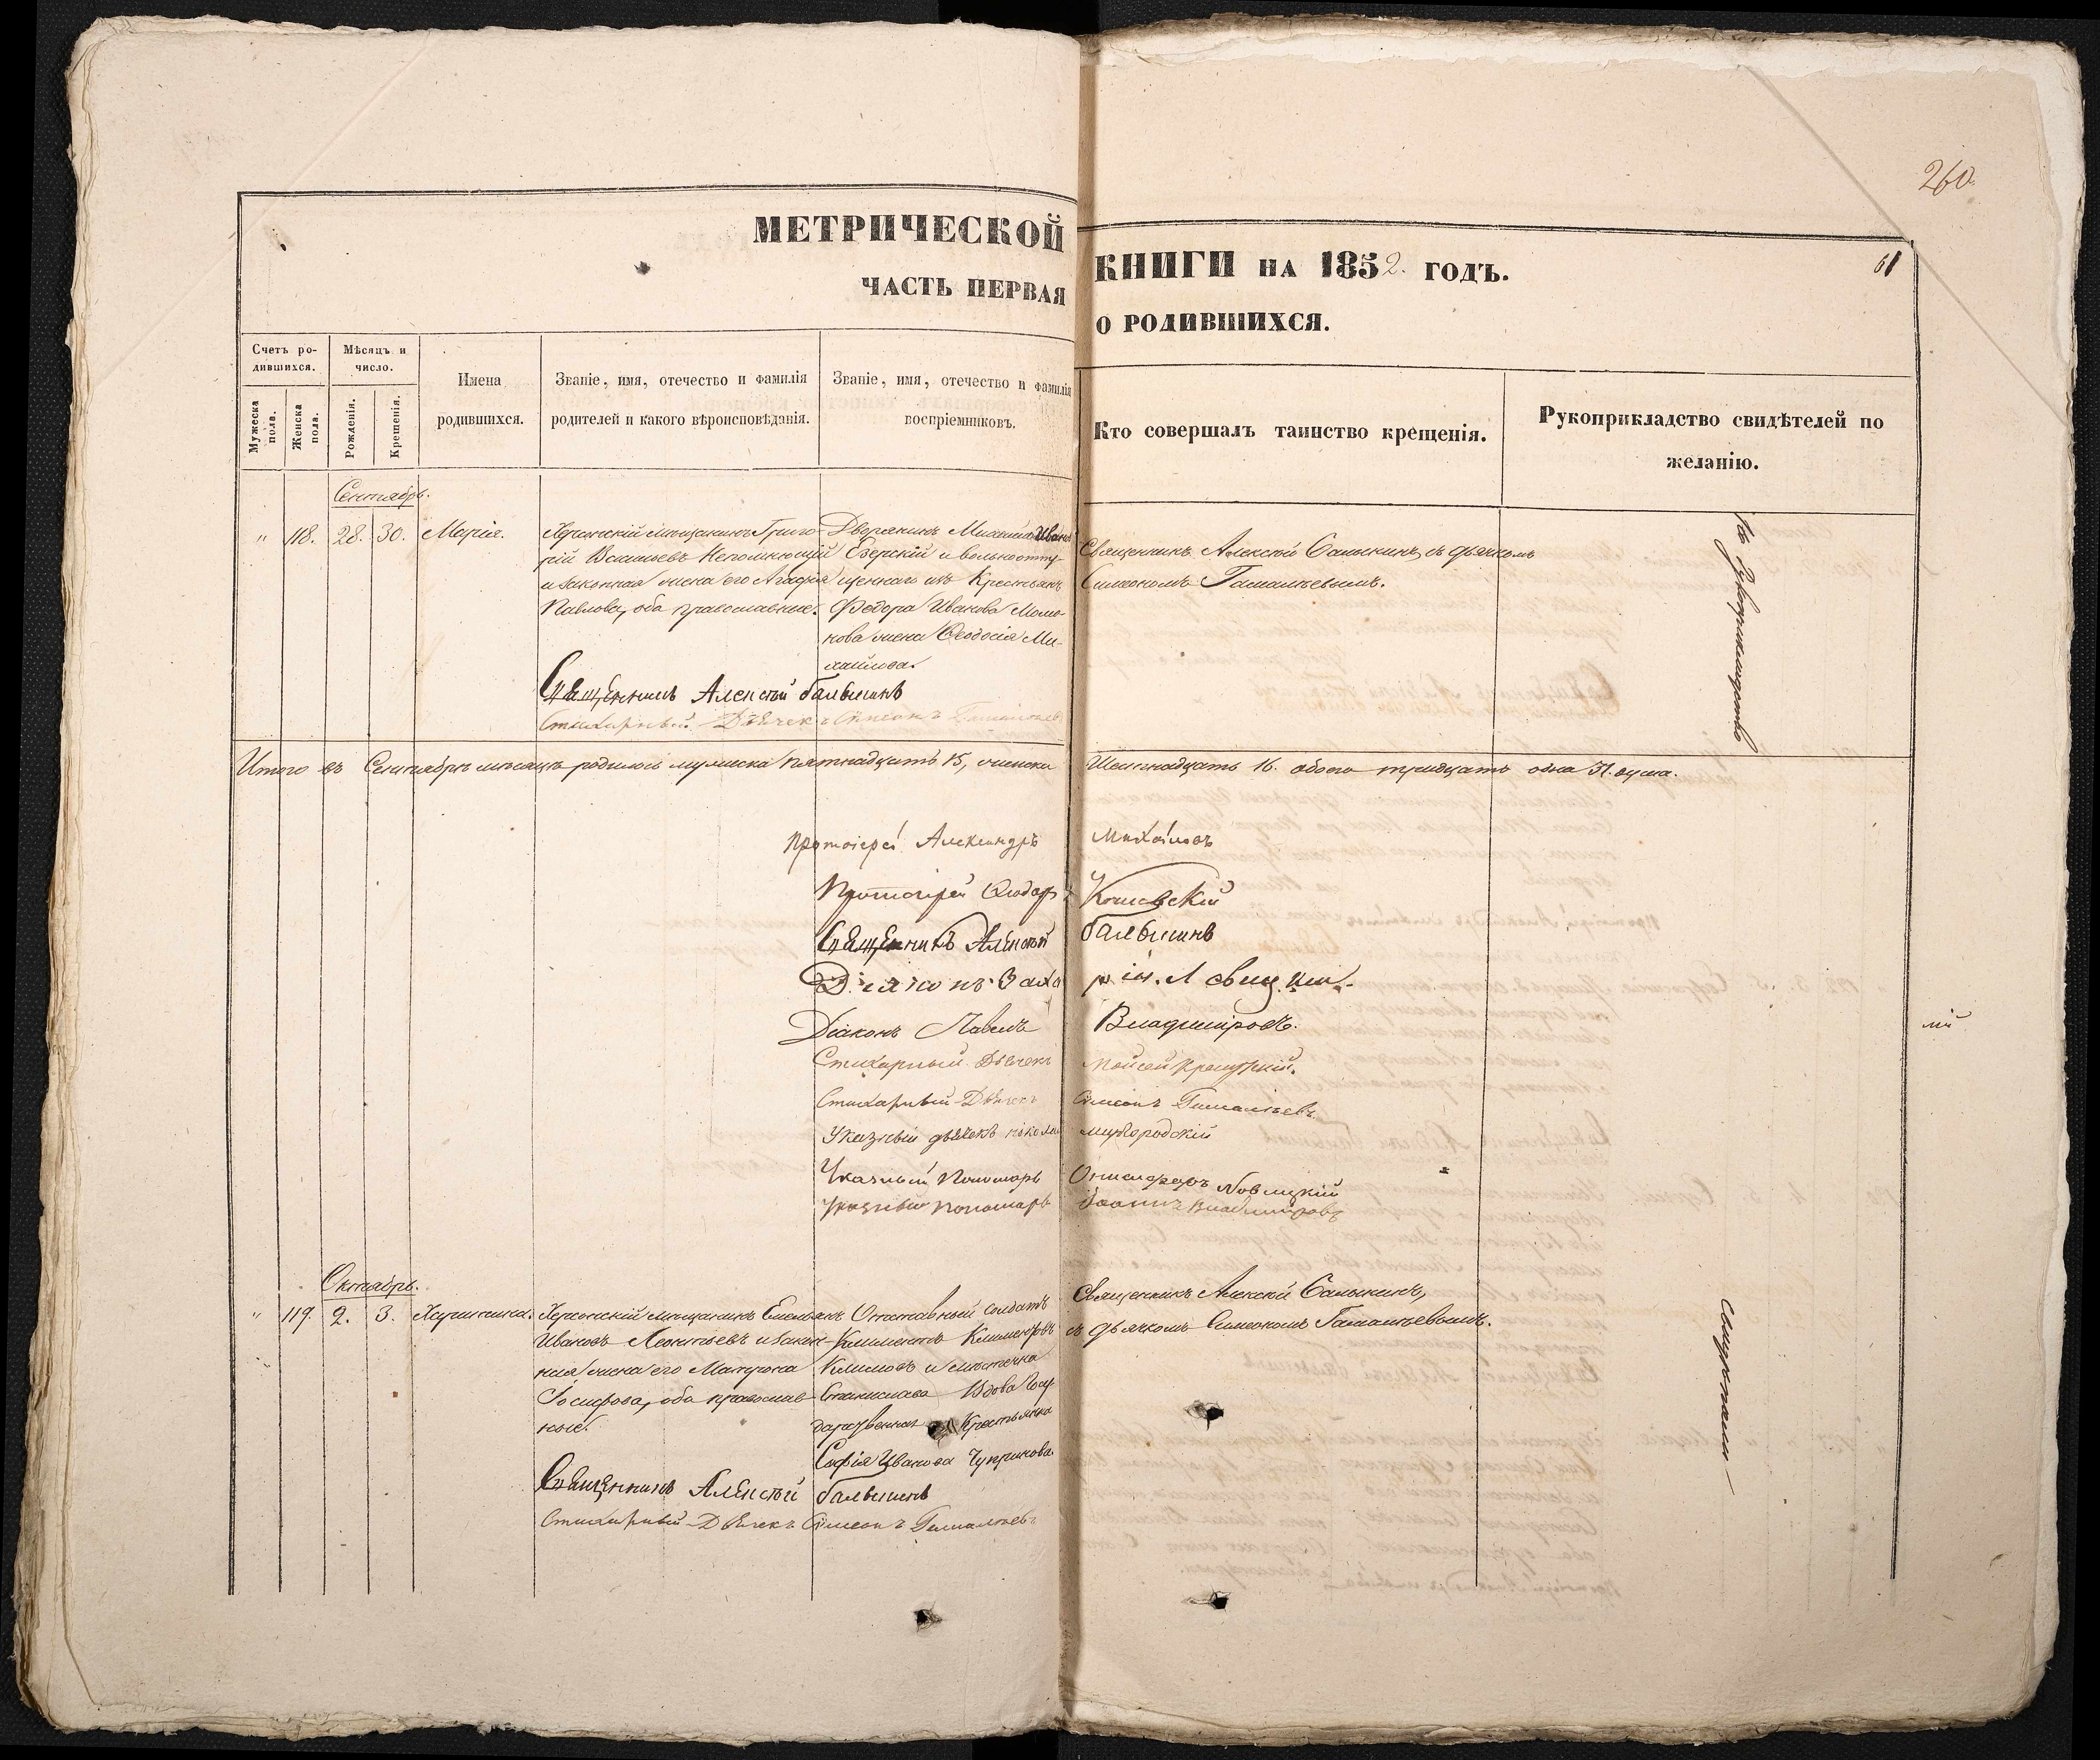 260.
МЕТРИЧЕСКОЙ КНИГИ НА 1852. ГОДЪ.
61
ЧАСТЬ ПЕРВАЯ О РОДИВШИХСЯ.
Счетъ ро-
дившихся.
Мужеска пола.
Женска пола.
Мѣсяцъ и
число.
Рожденія.
Крещенія.
Имена
родившихся.
Званіе, имя, отечество и фамилія
родителей и какого вѣроисповѣданія.
Званіе, имя, отечество и фамилія
воспріемниковъ.
Кто совершалъ таинство крещенія.
Рукоприкладство свидѣтелей по
желанію.
Сентябрь.
" 118. 28. 30. Марія.
Херсонскій мѣщанинъ Григо-
рій Васильевъ Непомнющій
и законная жена его Агафія
Павлова, оба православные.
Дворянинъ Михаилъ Ивановъ
Езерскій и вольноотпу-
щеннаго изъ Крестьянъ
Федора Иванова
жена Ѳеодосія Ми-
хайлова.
Священникъ Алексѣй Балыкинъ, съ дьячкомъ
Симеономъ Гамалѣевымъ.
Священникъ Алексѣй Балыкинъ
Стихарный Дьячекъ Симеонъ Гамалѣевъ
Итого въ Сентябрѣ мѣсяцѣ родилось мужеска пятнадцать 15, женска Шестнадцать 16. обоего тридцать одна 31. душа.
Протоіерей Александръ Михайловъ
Протоіерей Ѳеодоръ
Священникъ Алексѣй Балыкинъ
Діаконъ Заха рій Левицкій
Діаконъ Павелъ Владиміровъ.
Стихарный Дьячекъ Мойсей
Стихарный Дьячекъ Симеонъ Гамалѣевъ
Указный дьячокъ Никола Миргородскій
Указный Пономарь Онисифоръ Новицкій
Указный пономарь Іоаннъ Владиміровъ
Октябрь.
" 119. 2. 3. Харитина.
Херсонскій мѣщанинъ Емельянъ
Ивановъ Леонтьевъ и закон-
ная жена его Матрона
Іосифова, оба православ-
ные.
Отставный солдатъ
Климентъ Климентовъ
Климовъ и мѣстечка
Станислава Вдова Госу-
дарственная Крестьянка
Софія Иванова Чуприкова.
Священникъ Алексѣй Балыкинъ,
съ дьячкомъ Симеономъ Гамалѣевымъ.
Священникъ Алексѣй Балыкинъ
Стихарный Дьячекъ Симеонъ Гамалѣевъ